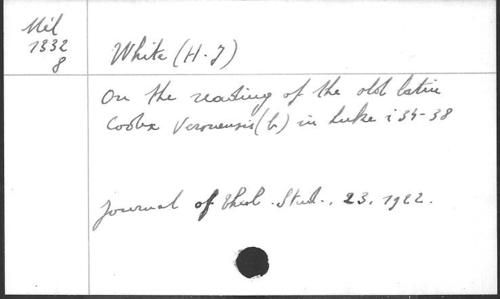 Mél
1332
8
White (H.J)
On the reading of the old latin
Codex Veronensis (b) in Luke i 34-38
Journal of Theol. Stud., 23, 1922.